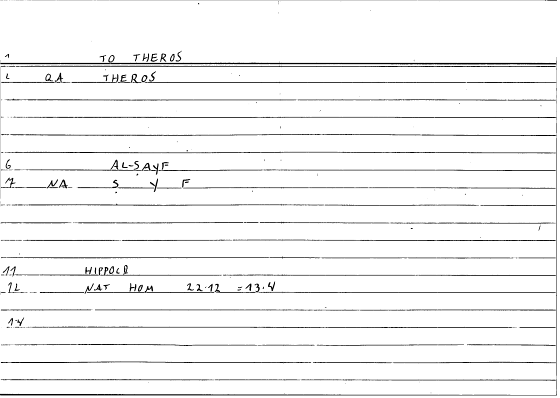 1 TO THEROS
2 QA THEROS
6 AL-SAYF
7 NA S Y F
11 HIPPOCR
12 NAT HOM 22.12 =13.4
14